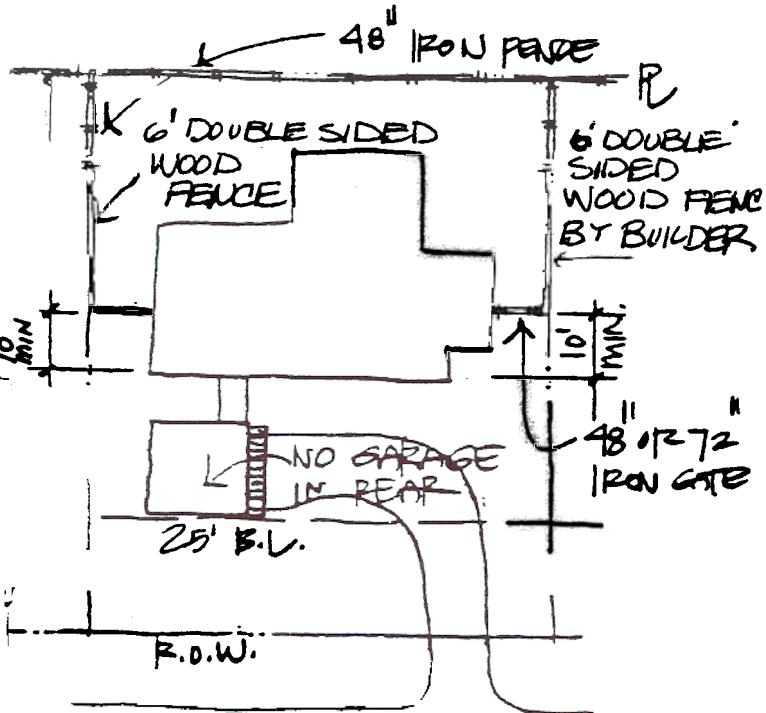 48" IRON FENCE
PL
6' DOUBLE SIDED
WOOD
FENCE
6' DOUBLE
SIDED
WOOD FENC
BY BUILDER
10'
MIN
10'
MIN.
48" OR 72"
IRON GATE
NO GARAGE
IN REAR
25' B.L.
R.O.W.